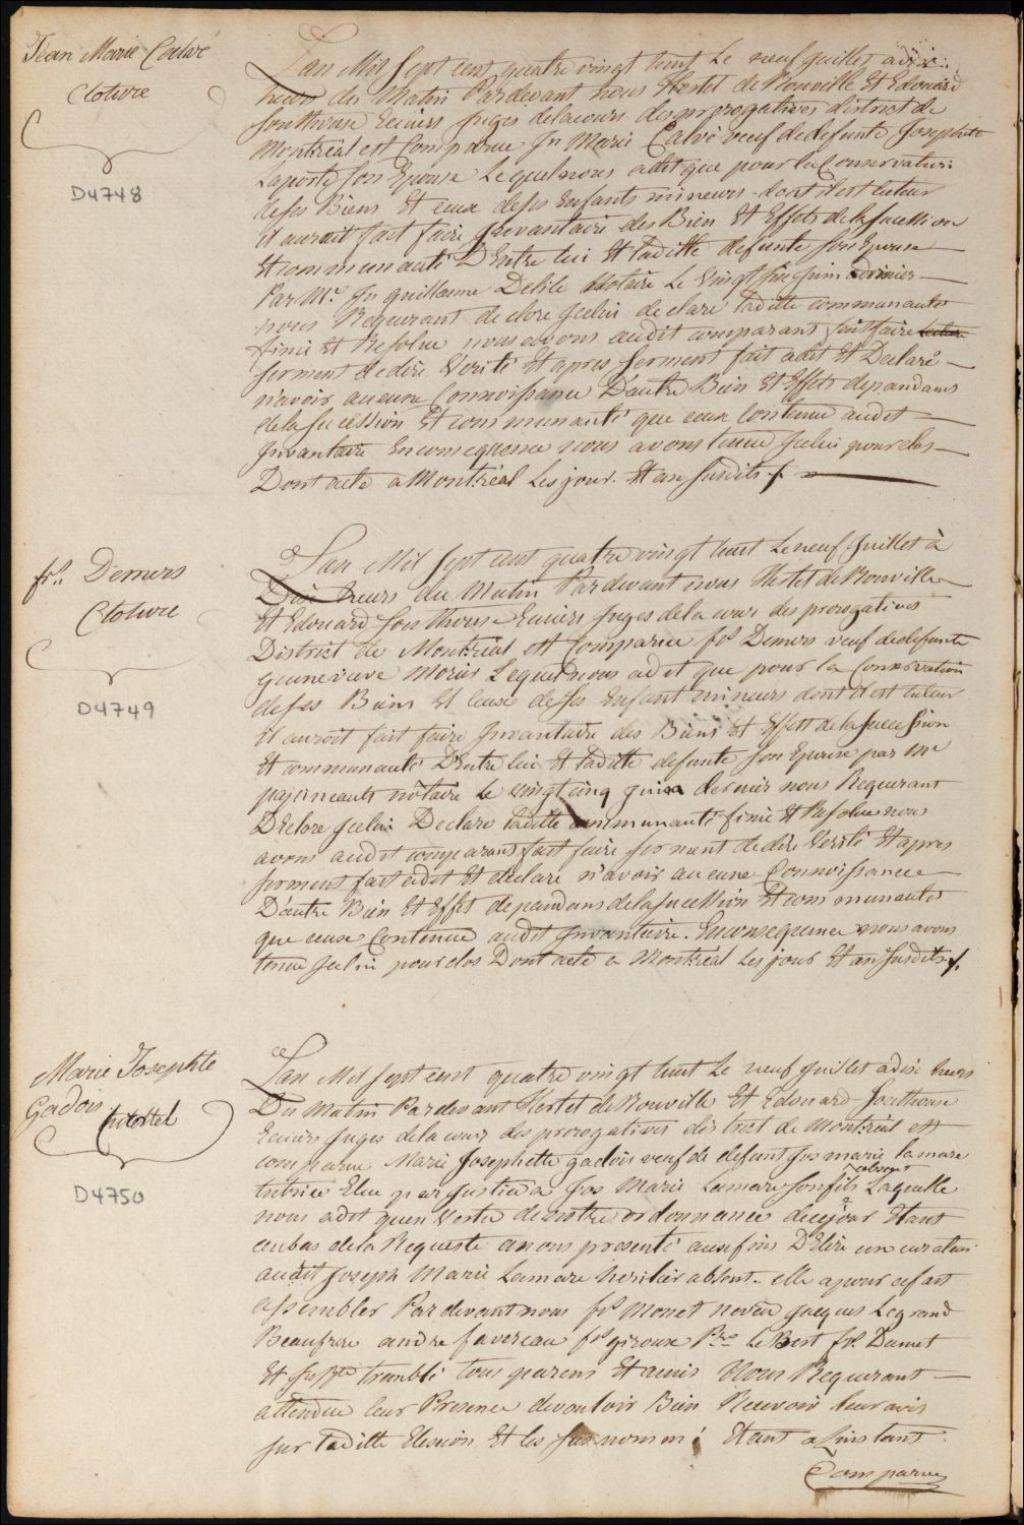 Jean Marie Calvé
Cloture
D4748
Lan Mil Sept cent quatre vingt huit Le neuf Juillet a dix
heures du Matin Pardevant nous Hertel de Rouville Et Edouard
Southouse Ecuiers Juges de la cours des prerogatives district de
Montréal est Comparue Jn Marie Calvé veuf de defunte Josephte
Laporte Son Epouse Lequel nous a dit que pour la Conservation
de ses Biens Et ceux de ses Enfants mineurs dont il est tuteur
il auroit fait faire Jnvantaire des Bien Et Effets de la Sucession
Et communauté D'Entre lui Et laditte defunte Son Epouse
Par Mc Jn Guillaume Delile Notaire Le Vingt Six Juin dernier
nous Requerant de clore Jcelui declare laditte communauté
finie Et Resolue nous avons audit comparant fait faire
Serment de dire Verité Et apres Serment fait a dit Et Declaré
n'avoir aucune Connoissance D'autre Bien Et Effets depandans
de la Sucession Et communauté que ceux Contenue audit
Jnvantaire En consequence nous avons tenue Jcelui pour clos
Dont acte a Montréal Les jour Et an Susdits
frs. Demers
Cloture
D4749
Lan Mil Sept cent quatre vingt huit Le neuf Juillet à
Dix heurs du Matin Par devant nous Hertel de Rouville
Et Edouard Southouse Ecuiers Juges de la cour des prerogatives
District de Montréal est Comparue frs Demers veuf de defunte
Genevieve Lequel nous a dit que pour la Conservation
de ses Biens Et Ceux de Ses Enfant mineurs dont il est tuteur
il auroit fait faire Jnvantaire des Biens Et Effets de la Sucession
Et communauté D'Entre lui Et laditte defunte Son Epouse par Me
notaire Le vingt cinq juin dernier nous Requerant
D'Eclore Jcelui Declare laditte communauté finie Et Resolue nous
avons audit comparant fait faire Serment de dire Verité Et apres
Serment fait a dit Et declaré n'avoir aucune Connoissance
D'autre Bien Et Effet depandans de la Sucession Et communauté
que ceux Contenue audit Jnvantaire. En consequence nous avons
tenue Jcelui pour clos Dont acte a Montréal Les jour Et an Susdits
Marie Josephte
Gadois
D4750
Lan Mil Sept cent quatre vingt huit Le neuf Juillet a dix heurs
Du Matin Par devant Hertel de Rouville Et Edouard Southouse
Ecuiers Juges de la cour des prerogatives district de Montréal est
comparue Marie Josephette gadois veuf de defunt Jos marie lamare
tutrice Elue par Justice a Jos Marie Lamare son fils absent Laquelle
nous a dit qu'en Vertu de notre ordonnance de ce jour Etant
au bas de la Requeste a nous presenté aux fins D'Elire un curateur
audit Joseph Marie Lamare heritier absent. elle a pour ce fait
assembler Par devant nous frs Monet neveu Jacques Legrand
Beaufrere andre favereau frs giroux Pre Le Best frs Dumet
Et tremblé tous parens Et amis Nous Requerant
attendue leur Presence de vouloir Bien Recevoir leur avis
sur laditte Elexion Et les Susnommé Etant a l'instant
Comparus